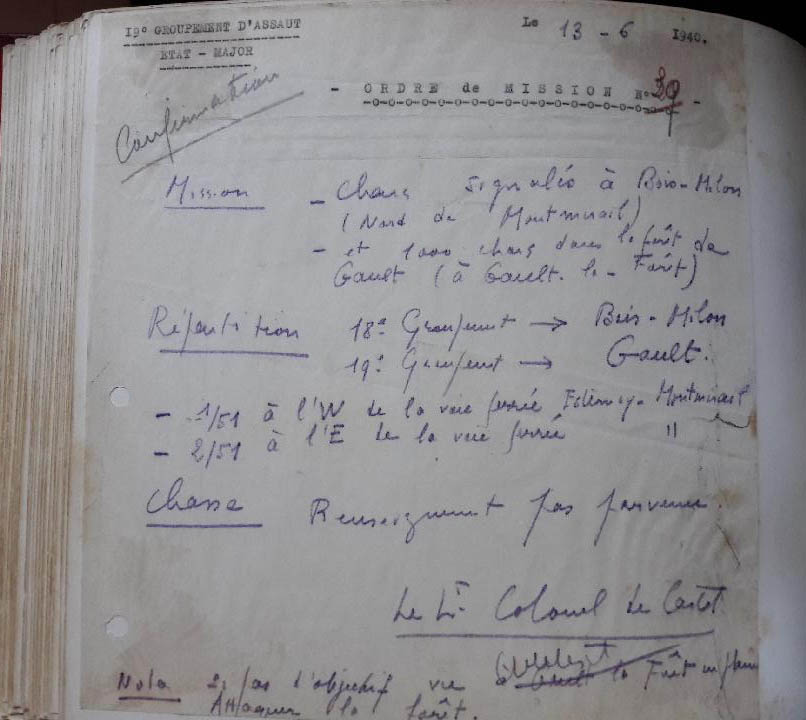 19° GROUPEMENT D'ASSAUT
ETAT - MAJOR
Le 13 - 6 1940.
Confirmation
- ORDRE de MISSION N° 39 -
Mission - Chars signalés à Bois-Milon
(Nord de Montmirail)
- et 1000 chars dans la forêt de
Gault (à Gault-la-Forêt)
Répartition 18e Groupement → Bois-Milon
19e Groupement → Gault.
- 1/51 à l'W de la voie ferrée Montmirail
- 2/51 à l'E de la voie ferrée "
Chasse Renseignement pas parvenu.
Le Lt Colonel de Castet
Nota Si pas d'objectif vu à la Forêt
Attaquer la forêt.